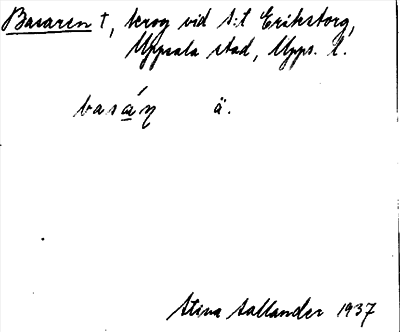 Basaren †, krog vid S:t Erikstorg,
Uppsala stad, Upps. l.
basán ä.
Stina Sallander 1937